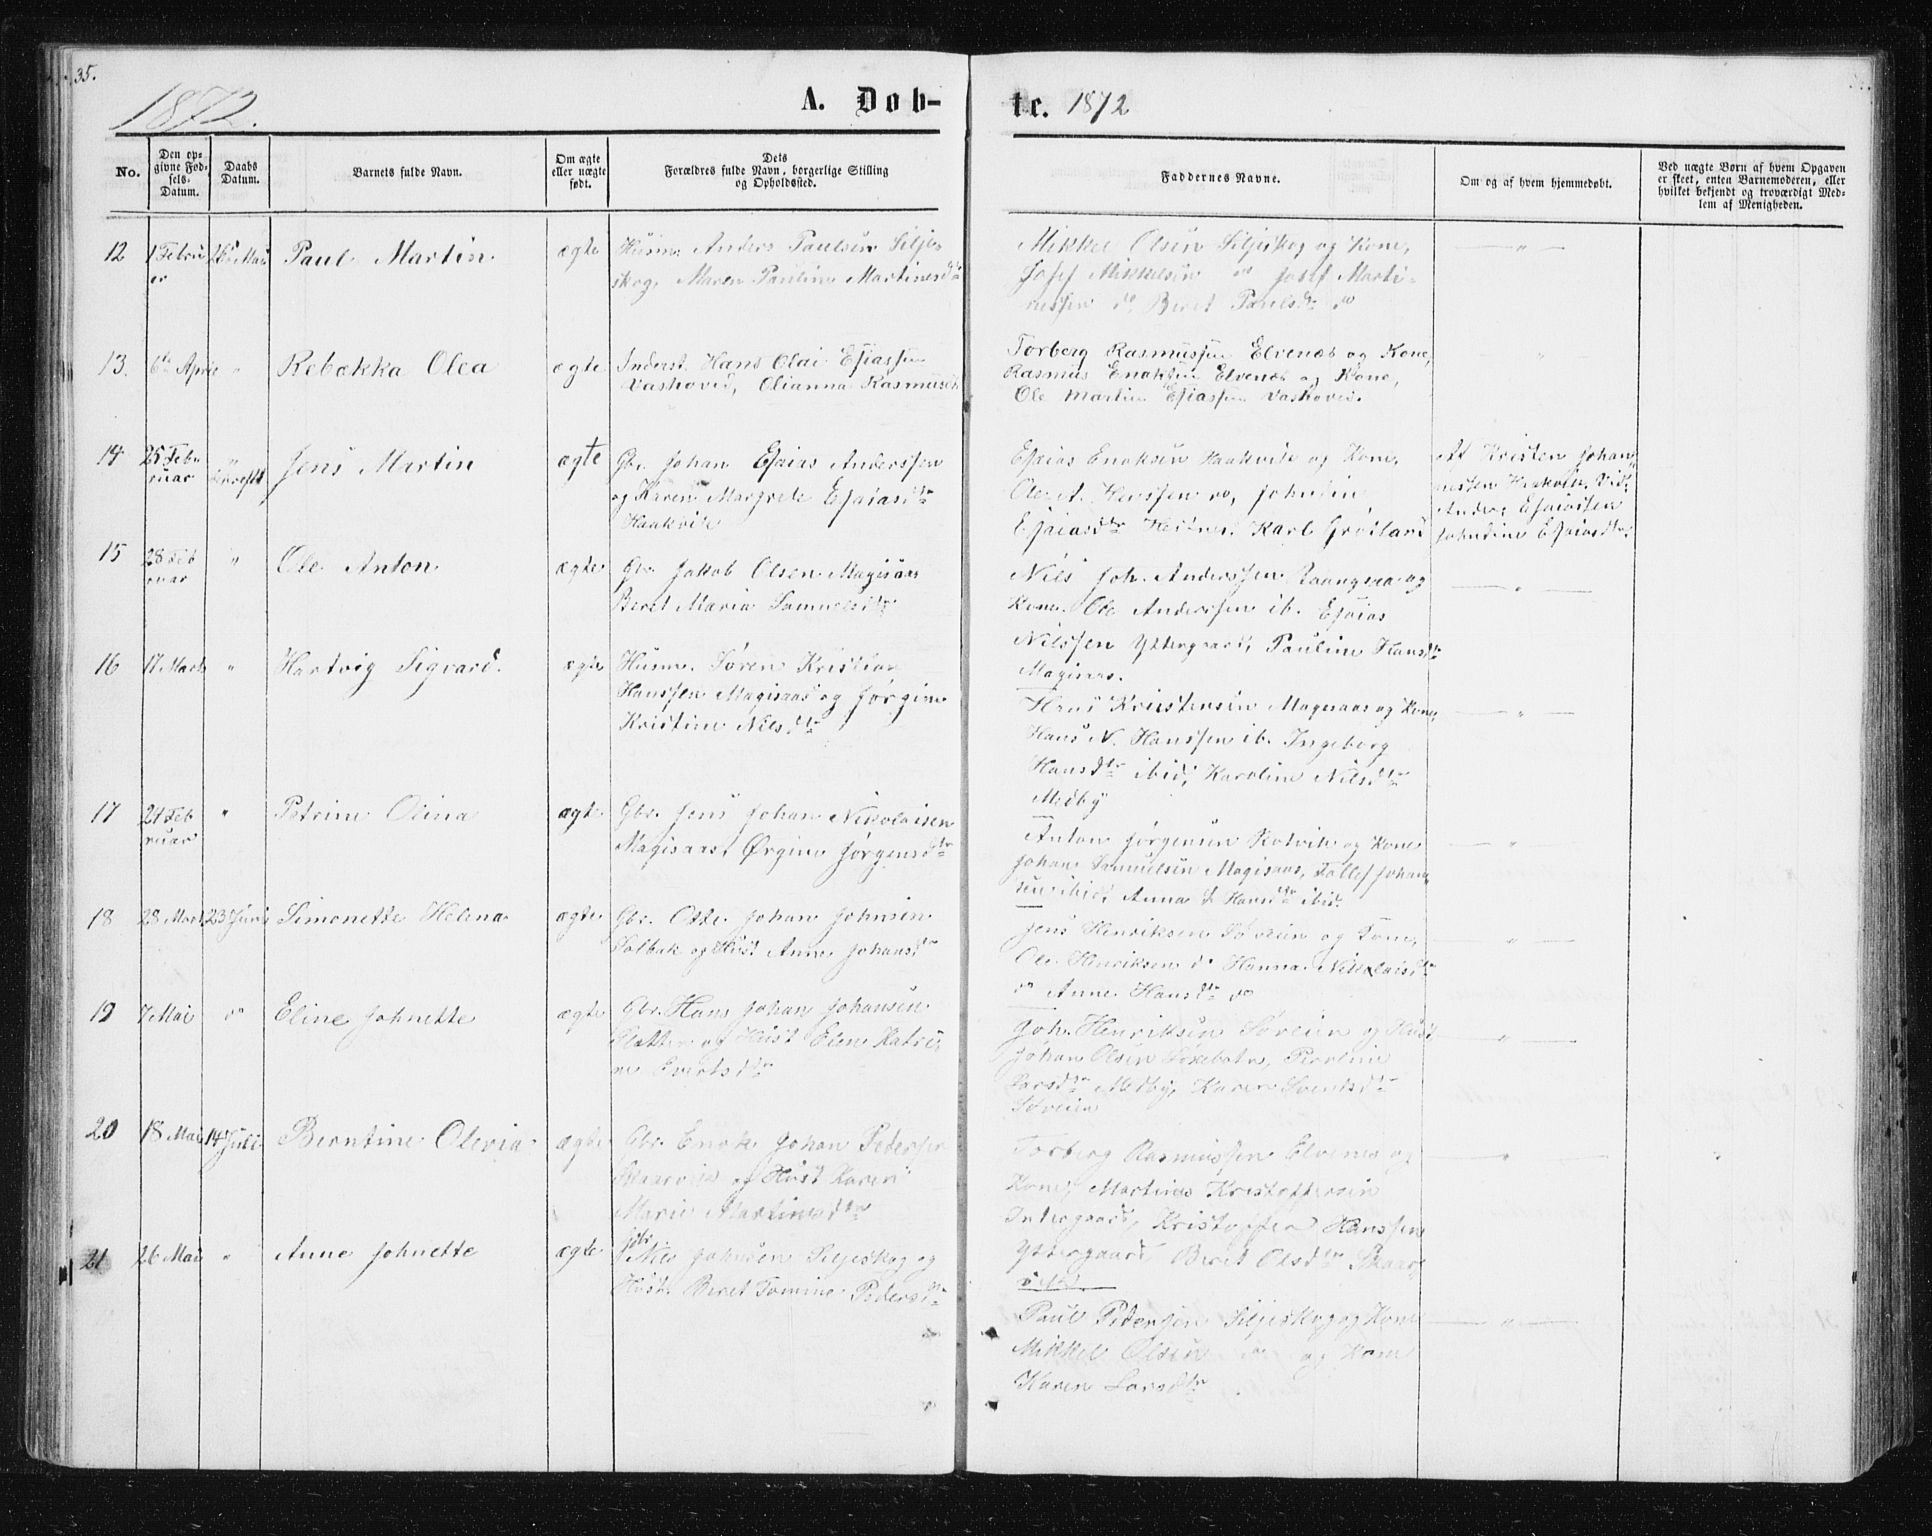 35.
1872.
A. Døb-
te. 1872
No.
Den op-
givne Fød-
sels-
Datum.
Daabs
Datum.
Barnets fulde Navn.
Om ægte
eller uægte
født.
Dets
Forældres fulde Navn, borgerlige Stilling
og Opholdssted.
Faddernes Navne.
Om og af hvem hjemmedøbt.
Ved uægte Børn af hvem Opgaven
er skeet, enten Barnemoderen, eller
hvilket bekjendt og troværdigt Med-
lem af Menigheden.
12 1 Febru
er
Mai Paul Martin ægte Husm. Anders Paulsen Silje-
skog, Maren Pauline Martinesdtr
Mikkel Olsen Siljeskog og Kone,
Josef Mikkelsen do Josef Marti-
nessen do, Beret Paulsdtr do
— " —
13. 6te April " Rebekka Olea ægte Inderst. Hans Olai Esiassen
Vashovid, Olianna Rasmusdtr
Torberg Rasmussen Elvenes og Kone,
Rasmus Enoksen Elvenes og Kone,
Ole Martin Esiassen Vashovid.
"
14 25 Febr
uar
" Jens Martin ægte Gbr. Johan Esaias Anderssen
og Karen Margrete Esaiasdtr
Haakvik
Esaias Enoksen Haakvik og Kone,
Ole A. do, Johndin
Esaiasdtr Karl
Af Kristen Johan-
nessen Haakvik. Vid.
Anders Esaiassen
Johndine Esaiasdtr.
15 28 Feb
ruar
" Ole Anton ægte Gbr. Jakob Olsen Magisaas
Beret Maria Samuelsdtr
Nils Joh. Anderssen og
Kone. Ole Anderssen ib. Esaias
Nilssen Yttergaard, Pauline Hansdtr
Magisaas.
— " —
16 17 Marts " Hartvig Sigvard. ægte Husm. Søren Kristian
Hanssen Magisaas og Jørgine
Kristine Nilsdtr
Hans Kristensen Magisaas og Kone,
Hans N. Hanssen ib. Ingeborg
Hansdtr ibid, Karoline Nilsdtr
Medby
— " —
17 24 Feb
ruar
" Petrine Olina ægte Gbr. Jens Johan Nikolaisen
Magisaas, Ørgine Jørgensdtr
Anton Jørgensen Rotvik og Kone
Johan Samuelsen Magisaas, Tollef Johan-
sen ibid, Anna Hansdtr ibid.
— " —
18 28 Mart 23 Juni Simonette Helena ægte Gbr. Otte Johan Johnsen
Solbak og Hust Anne Johansdtr
Jens Henriksen Søveien og Kone,
Ole Henriksen do Hanna Nikolaisdtr
do Anne Hansdtr do
— " —
19 7 Mai do Eline Johnette ægte Gbr. Hans Johan Johansen
og Hust Elen Katri-
ne Evertsdtr
Joh. Henriksen Søveien og Hust
Johan Olsen
Larsdtr Medby, Karen Svendsdtr
Søveien
— " —
20 18 Mai 14 Juli Berntine Oleria ægte Gbr. Enok Johan Pedersen
Skaarvik og Hust Karen
Marie Martinesdtr
Torberg Rasmussen Elvenes og
Kone, Martines Kristoffersen
Indergaard, Kristoffer Hanssen
Yttergaard, Beret Olsdtr Skaar-
vik.
— " — "
21 26 Mai " Anne Johnette ægte Gbr.
Nils Johnsen Siljeskog og
Hust. Beret Tomine Pedersdtr
Paul Pedersen Siljeskog og Kone
Mikkel Olsen do og Kone
Karen Larsdtr.
— " —